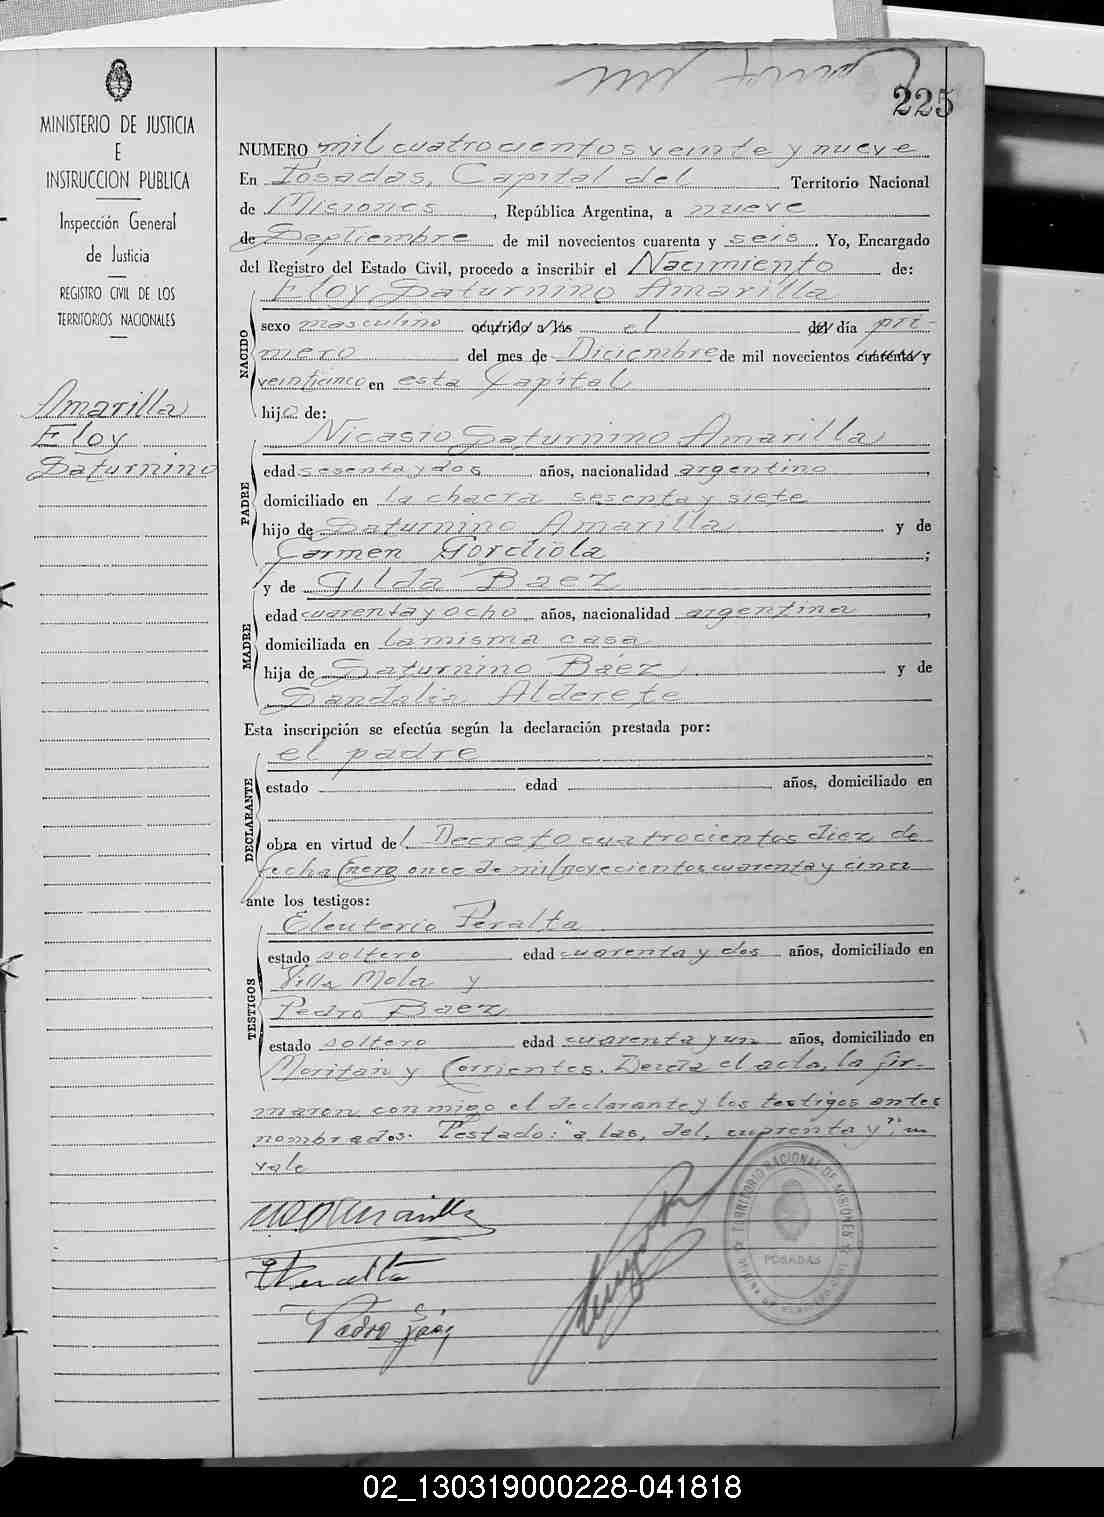 225
MINISTERIO DE JUSTICIA
E
INSTRUCCION PUBLICA
Inspección General
de Justicia
REGISTRO CIVIL DE LOS
TERRITORIOS NACIONALES
Amarilla
Eloy
Saturnino
NUMERO mil cuatrocientos veinte y nueve
En Posadas, Capital del Territorio Nacional
de Misiones, República Argentina, a nueve
de Septiembre de mil novecientos cuarenta y seis. Yo, Encargado
del Registro del Estado Civil, procedo a inscribir el Nacimiento de:
NACIDO
Eloy Saturnino Amarilla
sexo masculino ocurrido a las el del día pri-
mero del mes de Diciembre de mil novecientos cuarenta y
veinticinco en esta Capital
hijo de:
PADRE
Nicasio Saturnino Amarilla
edad sesenta y dos años, nacionalidad argentino,
domiciliado en la chacra sesenta y siete
hijo de Saturnino Amarilla y de
Carmen Gordiola;
y de Gilda Baez
MADRE
edad cuarenta y ocho años, nacionalidad argentina,
domiciliada en la misma casa
hija de Saturnino Báez y de
Sandalia Alderete
Esta inscripción se efectúa según la declaración prestada por:
DECLARANTE
el padre
estado edad años, domiciliado en
obra en virtud del Decreto cuatrocientos diez de
fecha Enero once de mil novecientos cuarenta y cinco
ante los testigos:
TESTIGOS
Eleuterio Peralta
estado soltero edad cuarenta y dos años, domiciliado en
Villa Mola y
Pedro Baez
estado soltero edad cuarenta y un años, domiciliado en
Moritan y Corrientes. Leída el acta, la fir-
maron conmigo el declarante y los testigos antes
nombrados. Testado: "a las, del, cuarenta y", no
vale
Peralta
Pedro Báez
TERRITORIO NACIONAL DE MISIONES
POSADAS
02_130319000228-041818